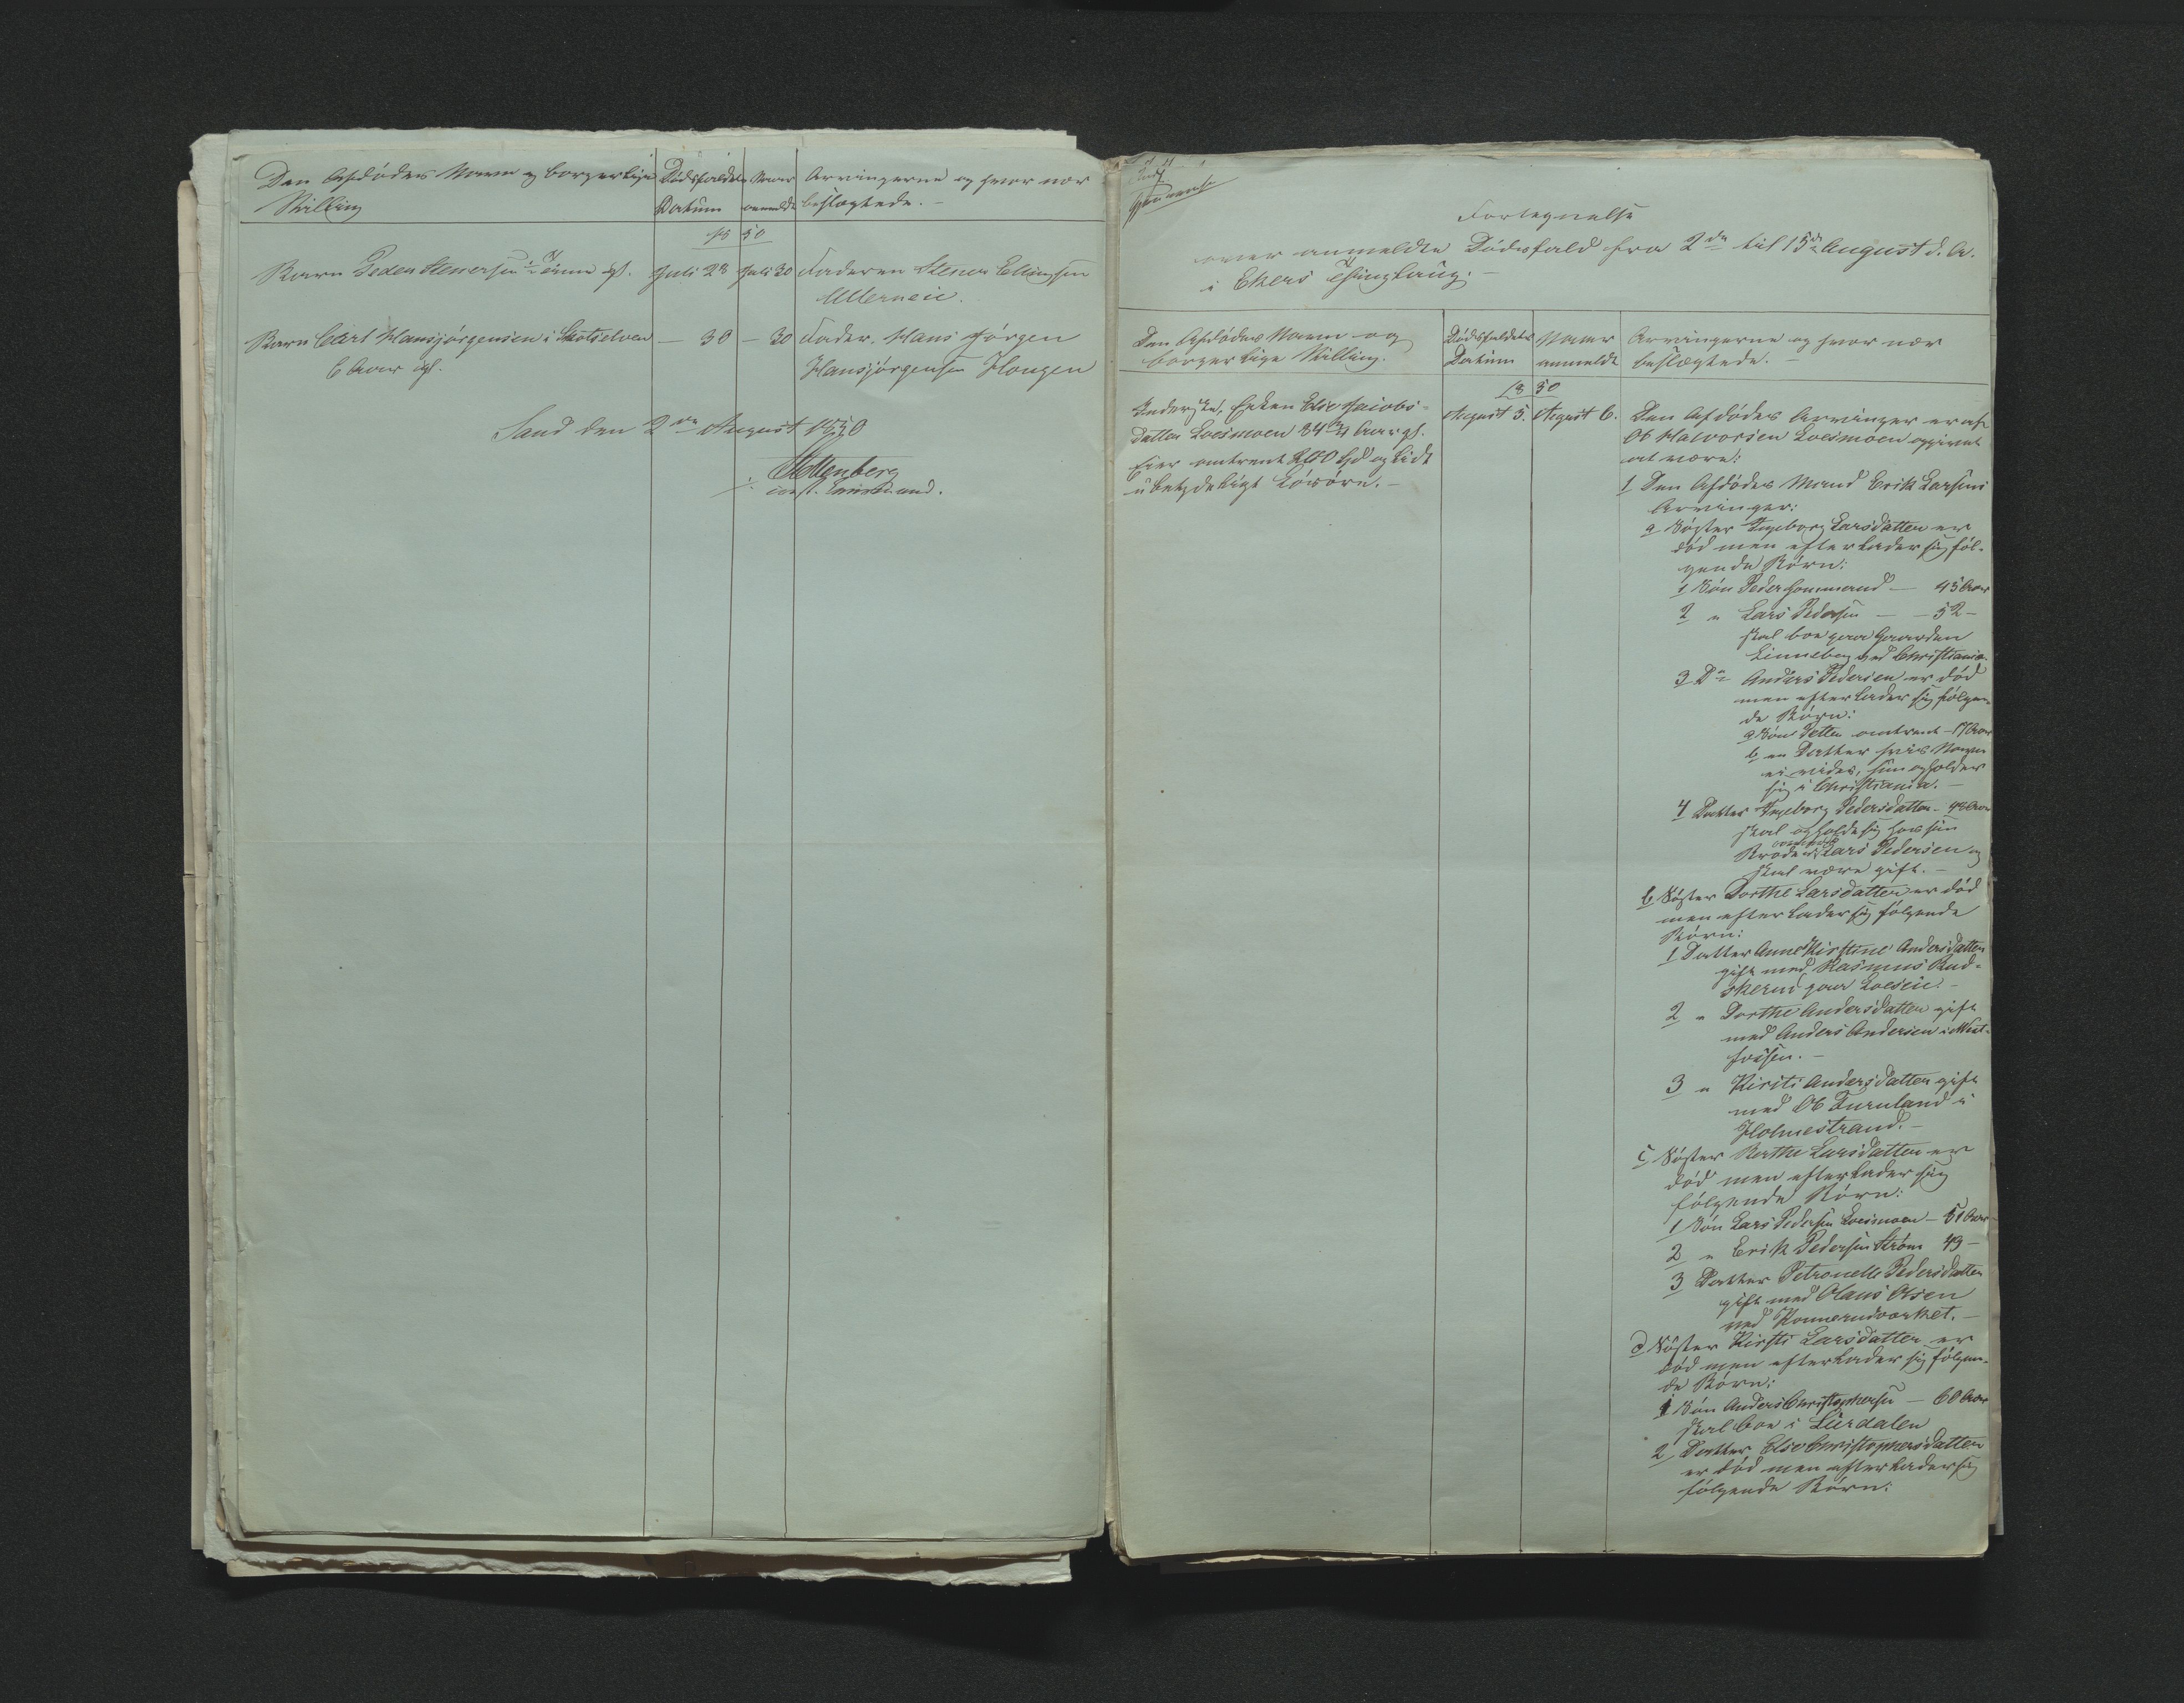 Den Afdødes Navn og borgerlige
Stilling
Dødsfaldets
Datum
Naar
anmeldt
Arvingerne og hvor nær
beslægtede. -
18 50
Barn Peder Stenersen gl.
Juli 28
Juli 30
Faderen Stener Ellingsen
Ullerneie.
Barn Carl Hansjørgensen i Skotselven
6 Aar gl.
- 30
- 30
Fader, Hans Jørgen
Hansjørgensen Hougen
Sand den 2den August 1850
Stoltenberg
const. Lensmand.
Fortegnelse
over anmeldte Dødsfald fra 2den til 15de August d. A.
i Ekers Thinglaug. -
Den Afdødes Navn og
borgerlige Stilling.
Dødsfaldets
Datum
Naar
anmeldt
Arvingerne og hvor nær
beslægtede. -
18 50
Enken Else Jacobs-
datter Loesmoen 84 Aar gl.
Eier omtrent 200 Spd og lidt
ubetydeligt Løsøre. -
August 5.
August 6.
Den Afdødes Arvinger er af
Ole Halvorsen Loesmoen opgivet
at være:
1 Den Afdødes Mand Erik Larsens
Arvinger:
a Søster Ingeborg Larsdatter er
død men efterlader sig føl-
gende Børn:
1 Søn Peder - 45 Aar
2 " Lars Pedersen - - 52 -
skal boe paa Gaarden
Linneberg ved Christiania.
3 Do Anders Pedersen er død
men efterlader sig følgen-
de Børn:
a Søn Petter omtrent - 17 Aar
b en Datter hvis Navn
ei vides, hun opholder
sig i Christiania. -
4 Datter Ingeborg Pedersdatter - Aar
skal opholde sig hos sin
Broder Lars Pedersen og
skal være gift. -
b Søster Dorthe Larsdatter er død
men efterlader sig følgende
Børn:
1 Datter Anne Kirstine Andersdatter
gift med Rasmus Rud-
skerud paa Loeseie. -
2 " Dorthe Andersdatter gift
med Anders Andersen i Vest-
fossen. -
3 " Kirsti Andersdatter gift
med Ole Turnland i
Holmestrand. -
c Søster Berthe Larsdatter er
død men efterlader sig
følgende Børn:
1 Søn Lars Pedersen Loesmoen - 51 Aar
2 " Erik Pedersen Strøm 49 -
3 Datter Petronelle Pedersdatter
gift med Olaus Olsen
ved Konnerudværket. -
d Søster Kirsti Larsdatter er
død men efterlader sig følgen-
de Børn:
1 Søn Anders Christophersen - 60 Aar
skal boe i Lierdalen
2 Datter Else Christophersdatter
er død men efterlader sig
følgende Børn: